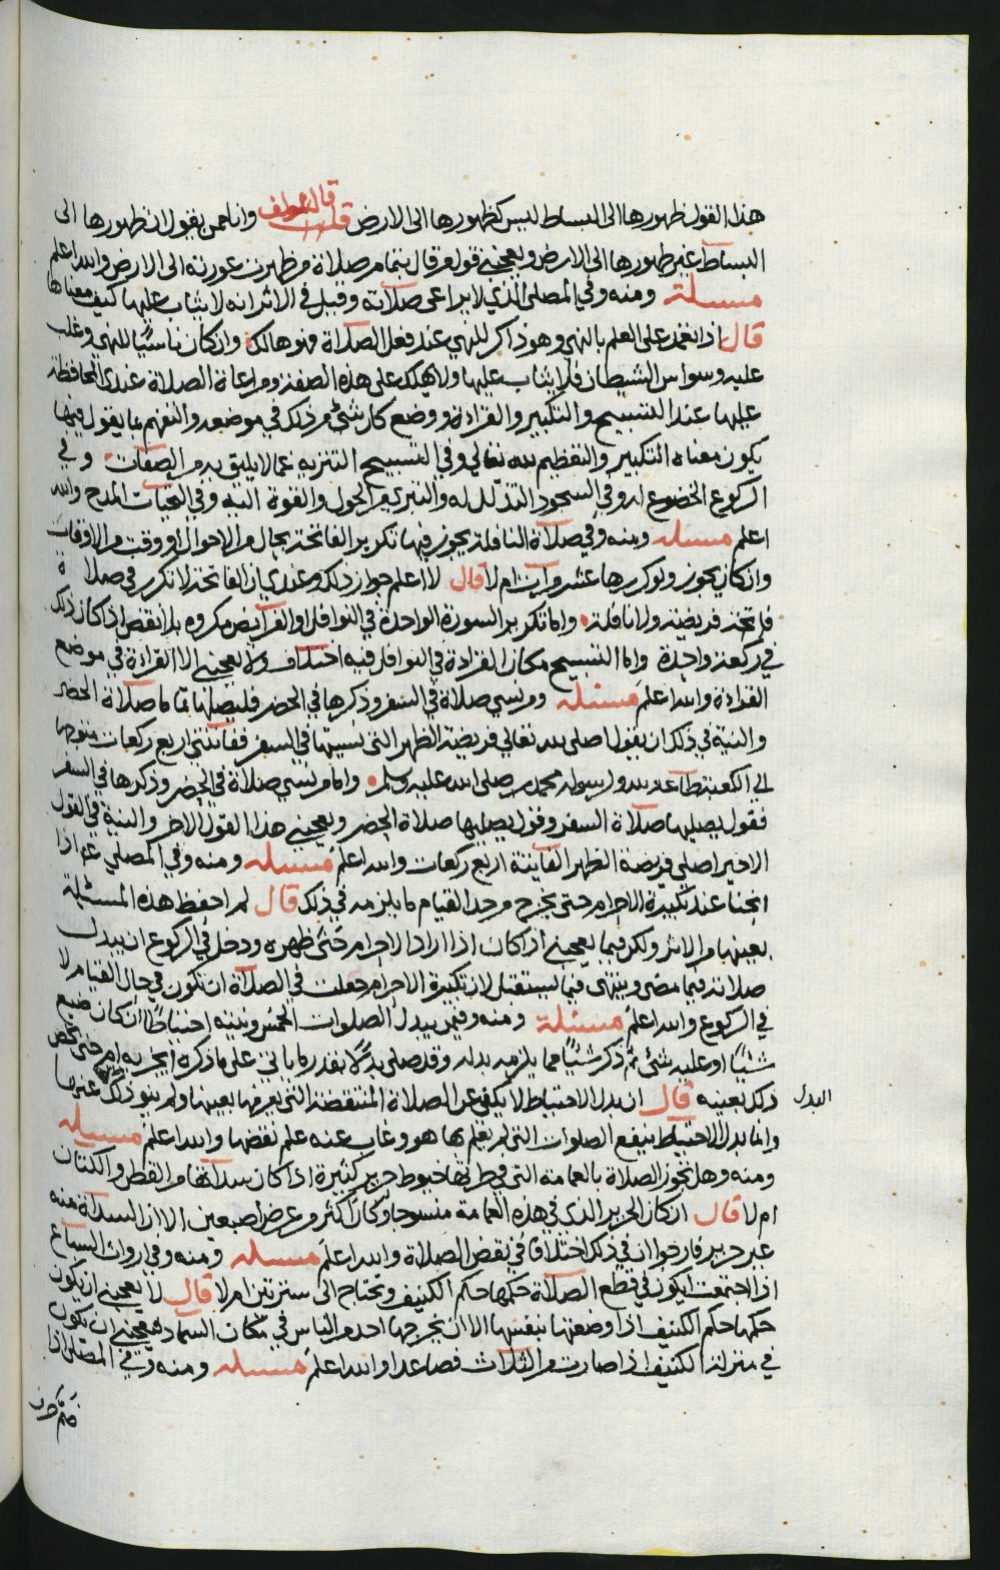 هذا القول ظهورها الى البساط ليس كظهورها الى الارض قال المؤلف قلت وانا ممن يقول ان ظهورها الى
البساط غير ظهورها الى الارض ويعجبني قول من قال بتمام صلاة من ظهرت عورته الى الارض والله اعلم
مسئلة ومنه وفي المصلي الذي لا يراعي صلاته وقيل في الاثر انه لا يثاب عليها كيف معناها
قال اذا تعمد على العلم بالنهي وهو ذاكر للنهي عند فعل الصلاة فهو هالك وان كان ناسيًا للنهي وغلب
عليه وسواس الشيطان فلا يثاب عليها ولا يهلك على هذه الصفة ومراعاة الصلاة عندي المحافظة
عليها عند التسبيح والتكبير والقراءة ووضع كل شئ من ذلك في موضعه والتفهم بما يقول فيها
يكون معناه التكبير والتعظيم لله تعالى وفي التسبيح التنزيه عما لا يليق به من الصفات وفي
الركوع الخضوع له وفي السجود التذلل له والتبري من الحول والقوة اليه وفي التحيات المدح والله
اعلم مسئله ومنه وفي صلاة النافلة يجوز فيها تكرير الفاتحة بحال من الاحوال او وقت من الاوقات
وان كان يجوز ولو كررها عشر مرات ام لا قال لا اعلم جواز ذلك وعندي ان الفاتحة لا تكرر في صلاة
فاتحة فريضة ولا نافلة واما تكرير السورة الواحدة في النوافل او الفرائض مكروه بلا نقض اذا كان ذلك
في ركعة واحدة واما التسبيح مكان القراءة في النوافل فيه اختلاف ولا يعجبني الا القراءة في موضع
القراءة والله اعلم مسئله ومن نسي صلاة في السفر وذكرها في الحضر فليصلها تماما صلاة الحضر
والنية في ذلك ان يقول اصلي لله تعالى فريضة الظهر التي نسيتها في السفر ففاتتني اربع ركعات متوجها
الى الكعبة طاعة لله ولرسوله محمد صلى الله عليه وسلم واما من نسي صلاة في الحضر وذكرها في السفر
فقول يصليها صلاة السفر وقول يصليها صلاة الحضر ويعجبني هذا القول الاخر والنية في القول
الاخير اصلي فريضة الظهر الفايتة اربع ركعات والله اعلم مسئله ومنه وفي المصلي اذا
انحنا عند تكبيرة الاحرام حتى يخرج من حد القيام ما يلزمه في ذلك قال لم احفظ هذه المسئلة
بعينها من الاثر ولكن فيما يعجبني اذا كان اذا اراد الاحرام حنى ظهره ودخل في الركوع ان يبدل
صلاته فيما مضى وينتهى فيما يستقبل لان تكبيرة الاحرام جعلت في الصلاة ان تكون في حال القيام لا
في الركوع والله اعلم مسئلة ومنه وفيمن يبدل الصلوات الخمس ونيته احتياطًا ان كان ضيع
شيئًا او عليه شئ ثم ذكر شيئًا مما يلزمه بدله وقد صلى بدلًا بقدر ما ياتي على ما ذكره ايجزيه ام حتى يخص
ذلك بعينه قال ان بدل الاحتياط لا يكفي عن الصلاة المنتقضة التي يعرفها بعينها ولم ينو ذلك عنها
البدل
واما بدل الاحتياط ينفع الصلوات التي لم يعلم بها هو وغاب عنه علم نقضها والله اعلم مسئله
ومنه وهل تجوز الصلاة بالعمامة التي في طرفها خيوط حرير كثيرة اذا كان سداتها من القطن والكتان
ام لا قال ان كان الحرير الذي في هذه العمامة منسوجا وكان اكثر من عرض اصبعين الا ان السداة منه
غير حرير فارجو ان في ذلك اختلافًا في نقض الصلاة والله اعلم مسئله ومنه وفي ارواث السباع
اذا اجتمعت ايكون في قطع الصلاة حكمها حكم الكنيف وتحتاج الى سترتين ام لا قال لا يعجبني ان يكون
حكمها حكم الكنيف اذا وضعتها بنفسها الا ان يخرجها احد من الناس في مكان السماد فيعجبني ان تكون
في منزلة الكنيف اذا صارت من الثلاث فصاعدا والله اعلم مسئله ومنه وفي المصلي اذا